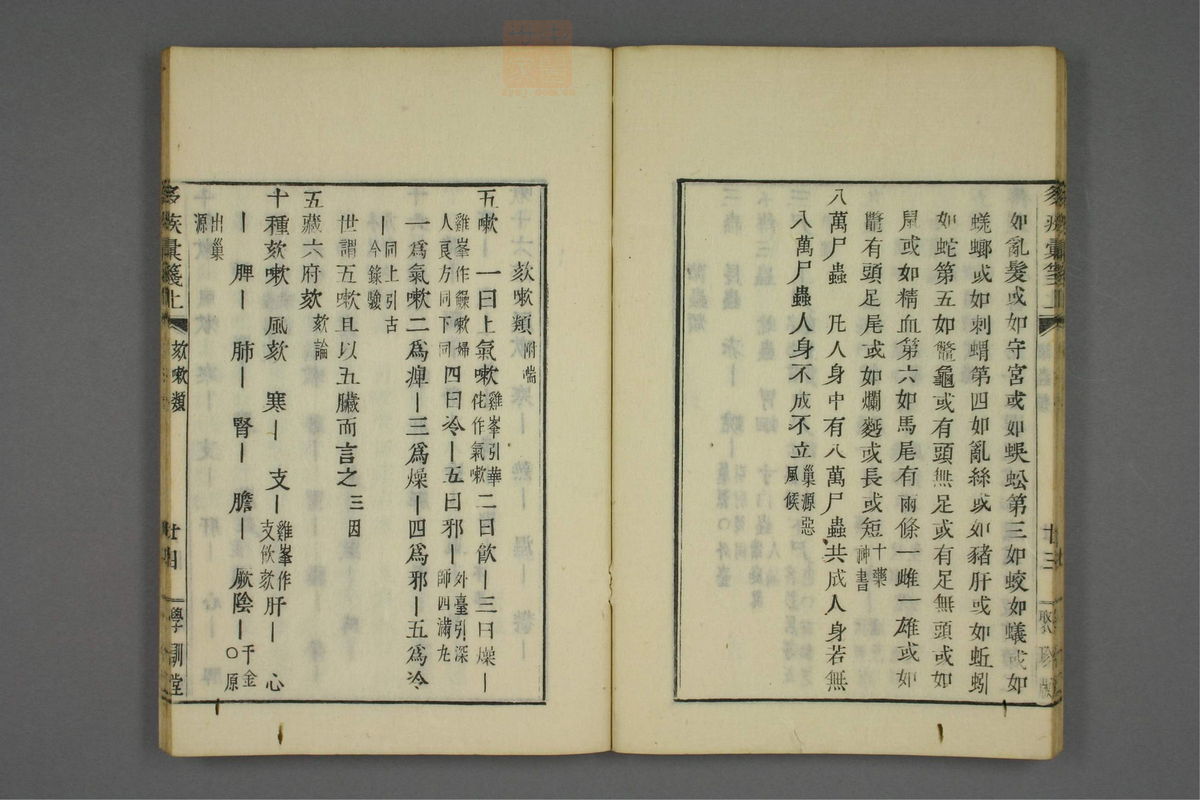 如亂髮或如守宮或如蜈蚣第三如蛟如蟻或如
蜣螂或如刺蝟第四如亂絲或如豬肝或如蚯蚓
如蛇第五如鼈龜或有頭無足或有足無頭或如
鼠或如精血第六如馬尾有兩條一雌一雄或如
鼈有頭足尾或如爛麪或長或短十藥神書
八萬尸蟲 凡人身中有八萬尸蟲共成人身若無
八萬尸蟲人身不成不立巢源惡風候
廿三
咳嗽類附喘
五嗽 一曰上氣嗽雞峯引華佗作氣嗽二曰飲ー三曰燥ー
雞峯作䐜嗽婦人良方同下同四曰冷ー五曰邪ー外臺引深師四滿丸
一爲氣嗽二爲痺ー三爲燥ー四爲邪ー五爲冷
ー同上引古今錄驗
世謂五嗽且以五臟而言之三因
五藏六府咳咳論
十種咳嗽 風咳 寒ー 支ー雞峯作支飲咳肝ー 心
ー 脾ー 肺ー 腎ー 膽ー 厥陰ー千金○原
出巢源
咳嗽類
廿四
學訓堂